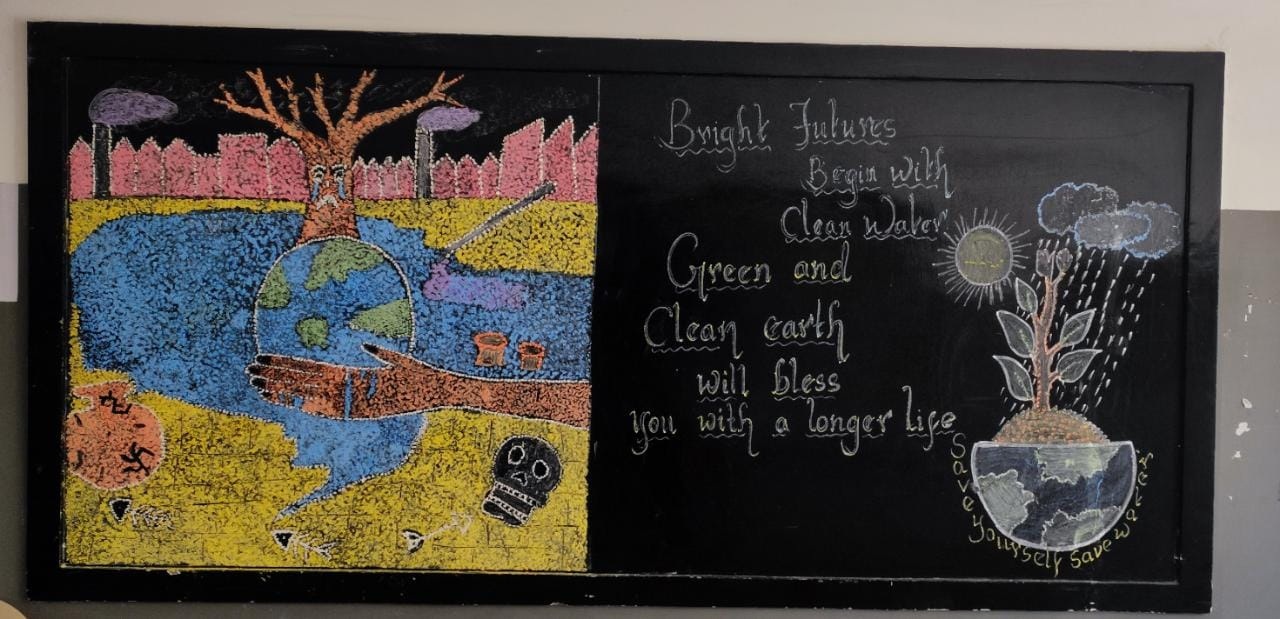 Bright Futures
Begin with
Clean Water
Green and
Clean earth
will bless
you with a longer life
Save yourself save water